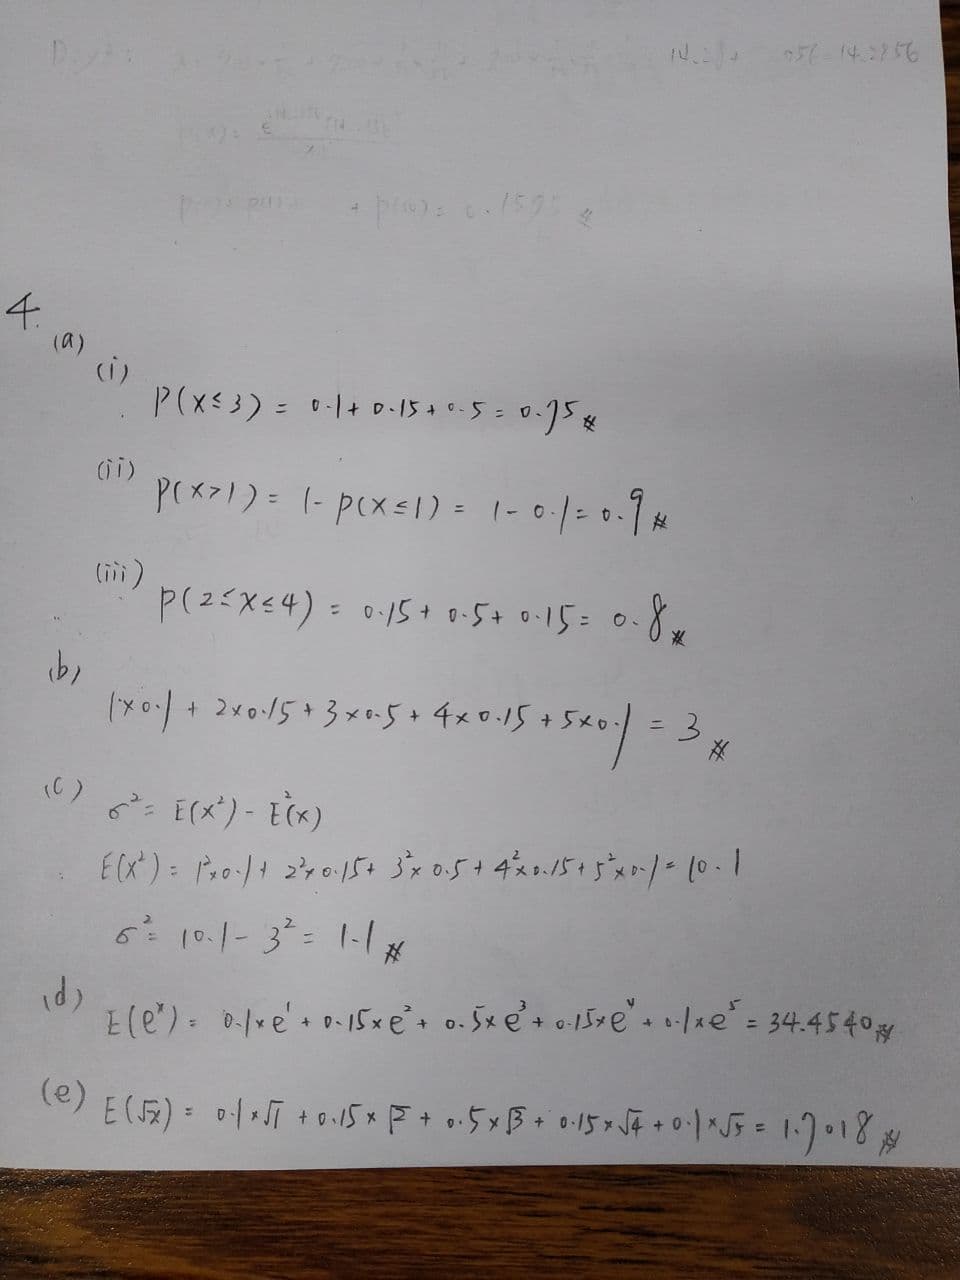 14.2856
4.
(a)
(i)
P(X≤3) = 0.1 + 0.15 + 0.5 = 0.75 #
(ii)
P(X>1) = 1 - P(X≤1) = 1 - 0.1 = 0.9 #
(iii)
P(2≤X≤4) = 0.15 + 0.5 + 0.15 = 0.8 #
(b)
1×0.1 + 2×0.15 + 3×0.5 + 4×0.15 + 5×0.1 = 3 #
(c)
σ² = E(x²) - E²(x)
E(x²) = 1²×0.1 + 2²×0.15 + 3²×0.5 + 4²×0.15 + 5²×0.1 = 10.1
σ² = 10.1 - 3² = 1.1 #
(d)
E(eˣ) = 0.1×e¹ + 0.15×e² + 0.5×e³ + 0.15×e⁴ + 0.1×e⁵ = 34.4540 #
(e)
E(√x) = 0.1×√1 + 0.15×√2 + 0.5×√3 + 0.15×√4 + 0.1×√5 = 1.7018 #